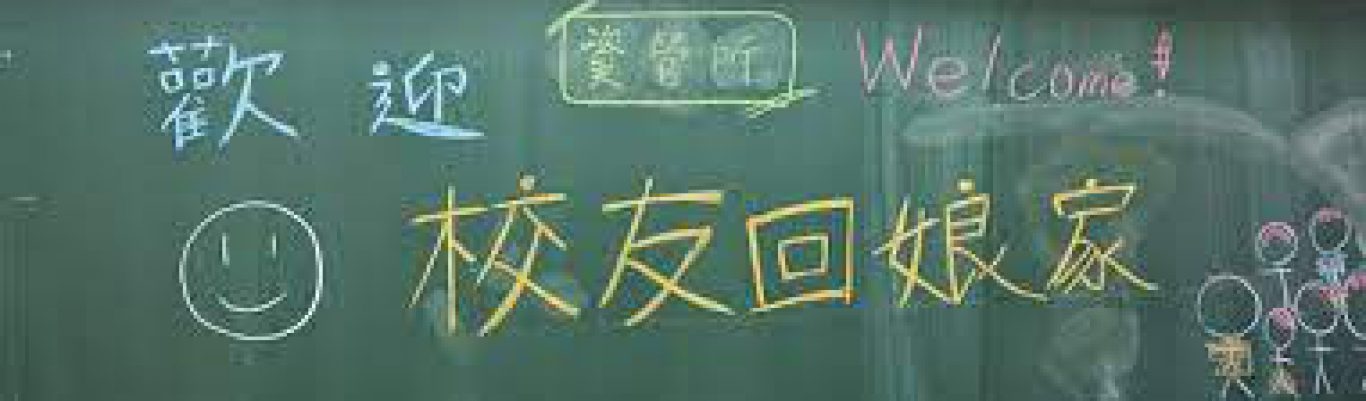 歡迎 資管所 Welcome!
校友回娘家